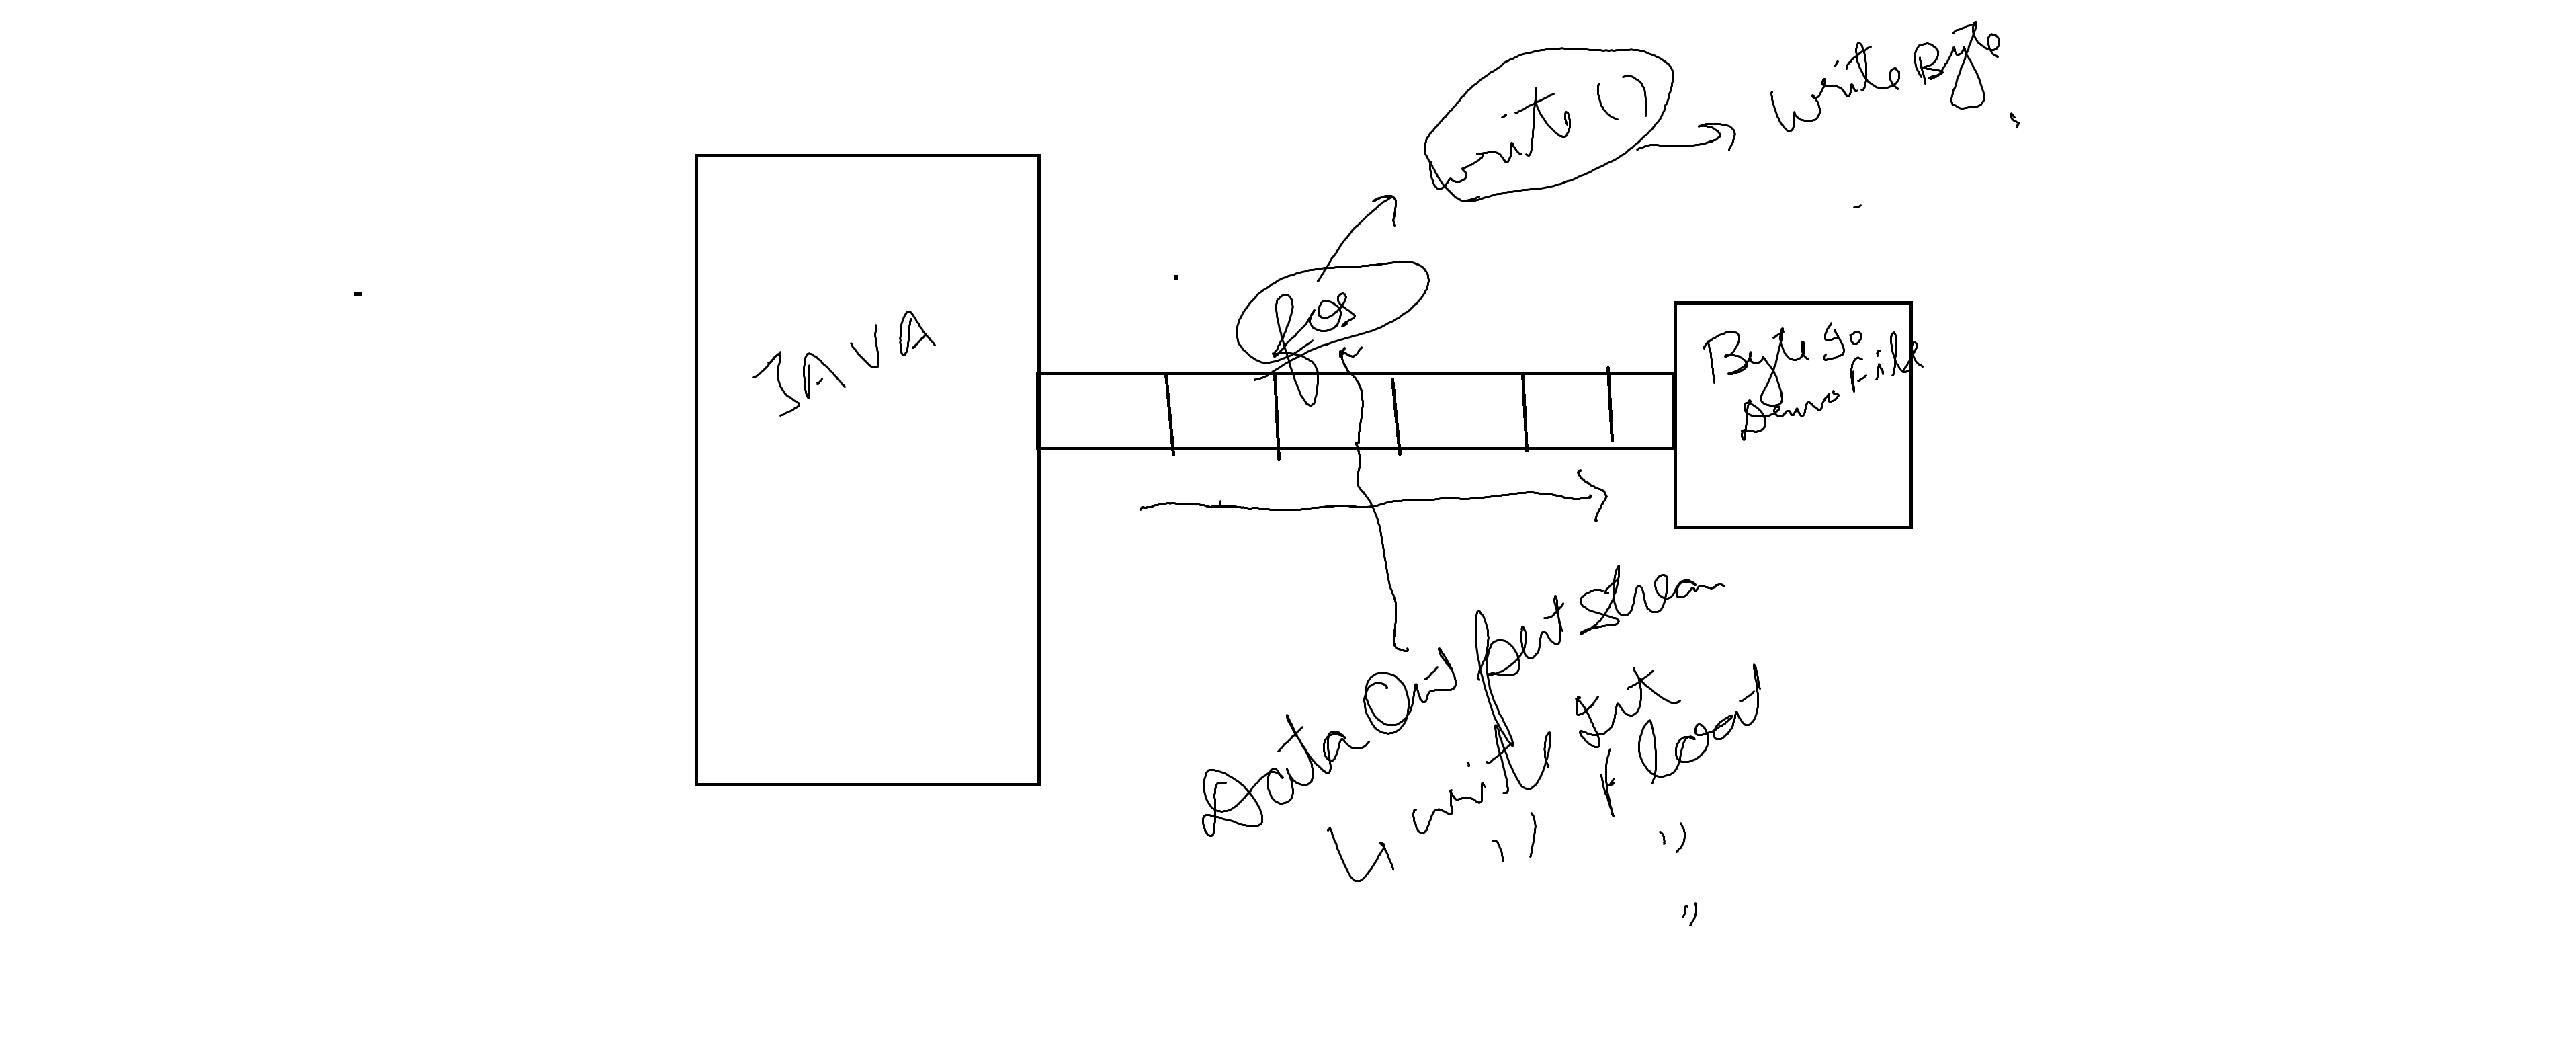 write () → write Byte
fos
JAVA
Byte Io
Demo File
Data Output Stream
↳ write Int
" Float
"
"